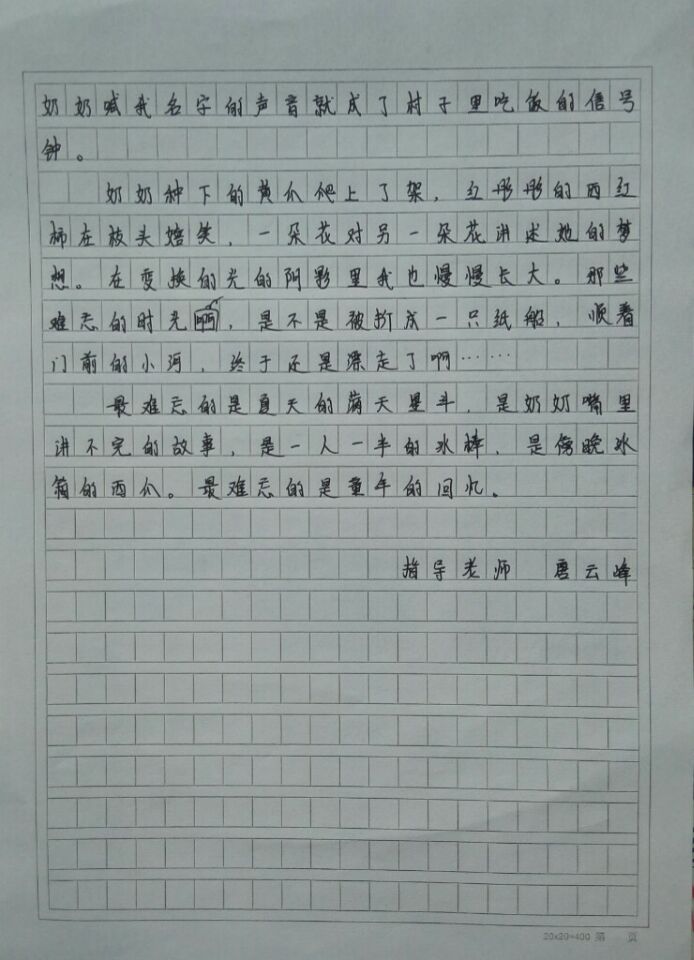 奶奶喊我名字的声音就成了村子里吃饭的信号
钟。
奶奶种下的黄瓜爬上了架，红彤彤的西红
柿在枝头嬉笑，一朵花对另一朵花讲述她的梦
想。在变换的光的阴影里我也慢慢长大。那些
难忘的时光啊，是不是被折成一只纸船，顺着
门前的小河，终于还是漂走了啊……
最难忘的是夏天的满天星斗，是奶奶嘴里
讲不完的故事，是一人一半的冰棒，是傍晚冰
箱的西瓜。最难忘的是童年的回忆。
指导老师 唐云峰
20x20=400 第 页